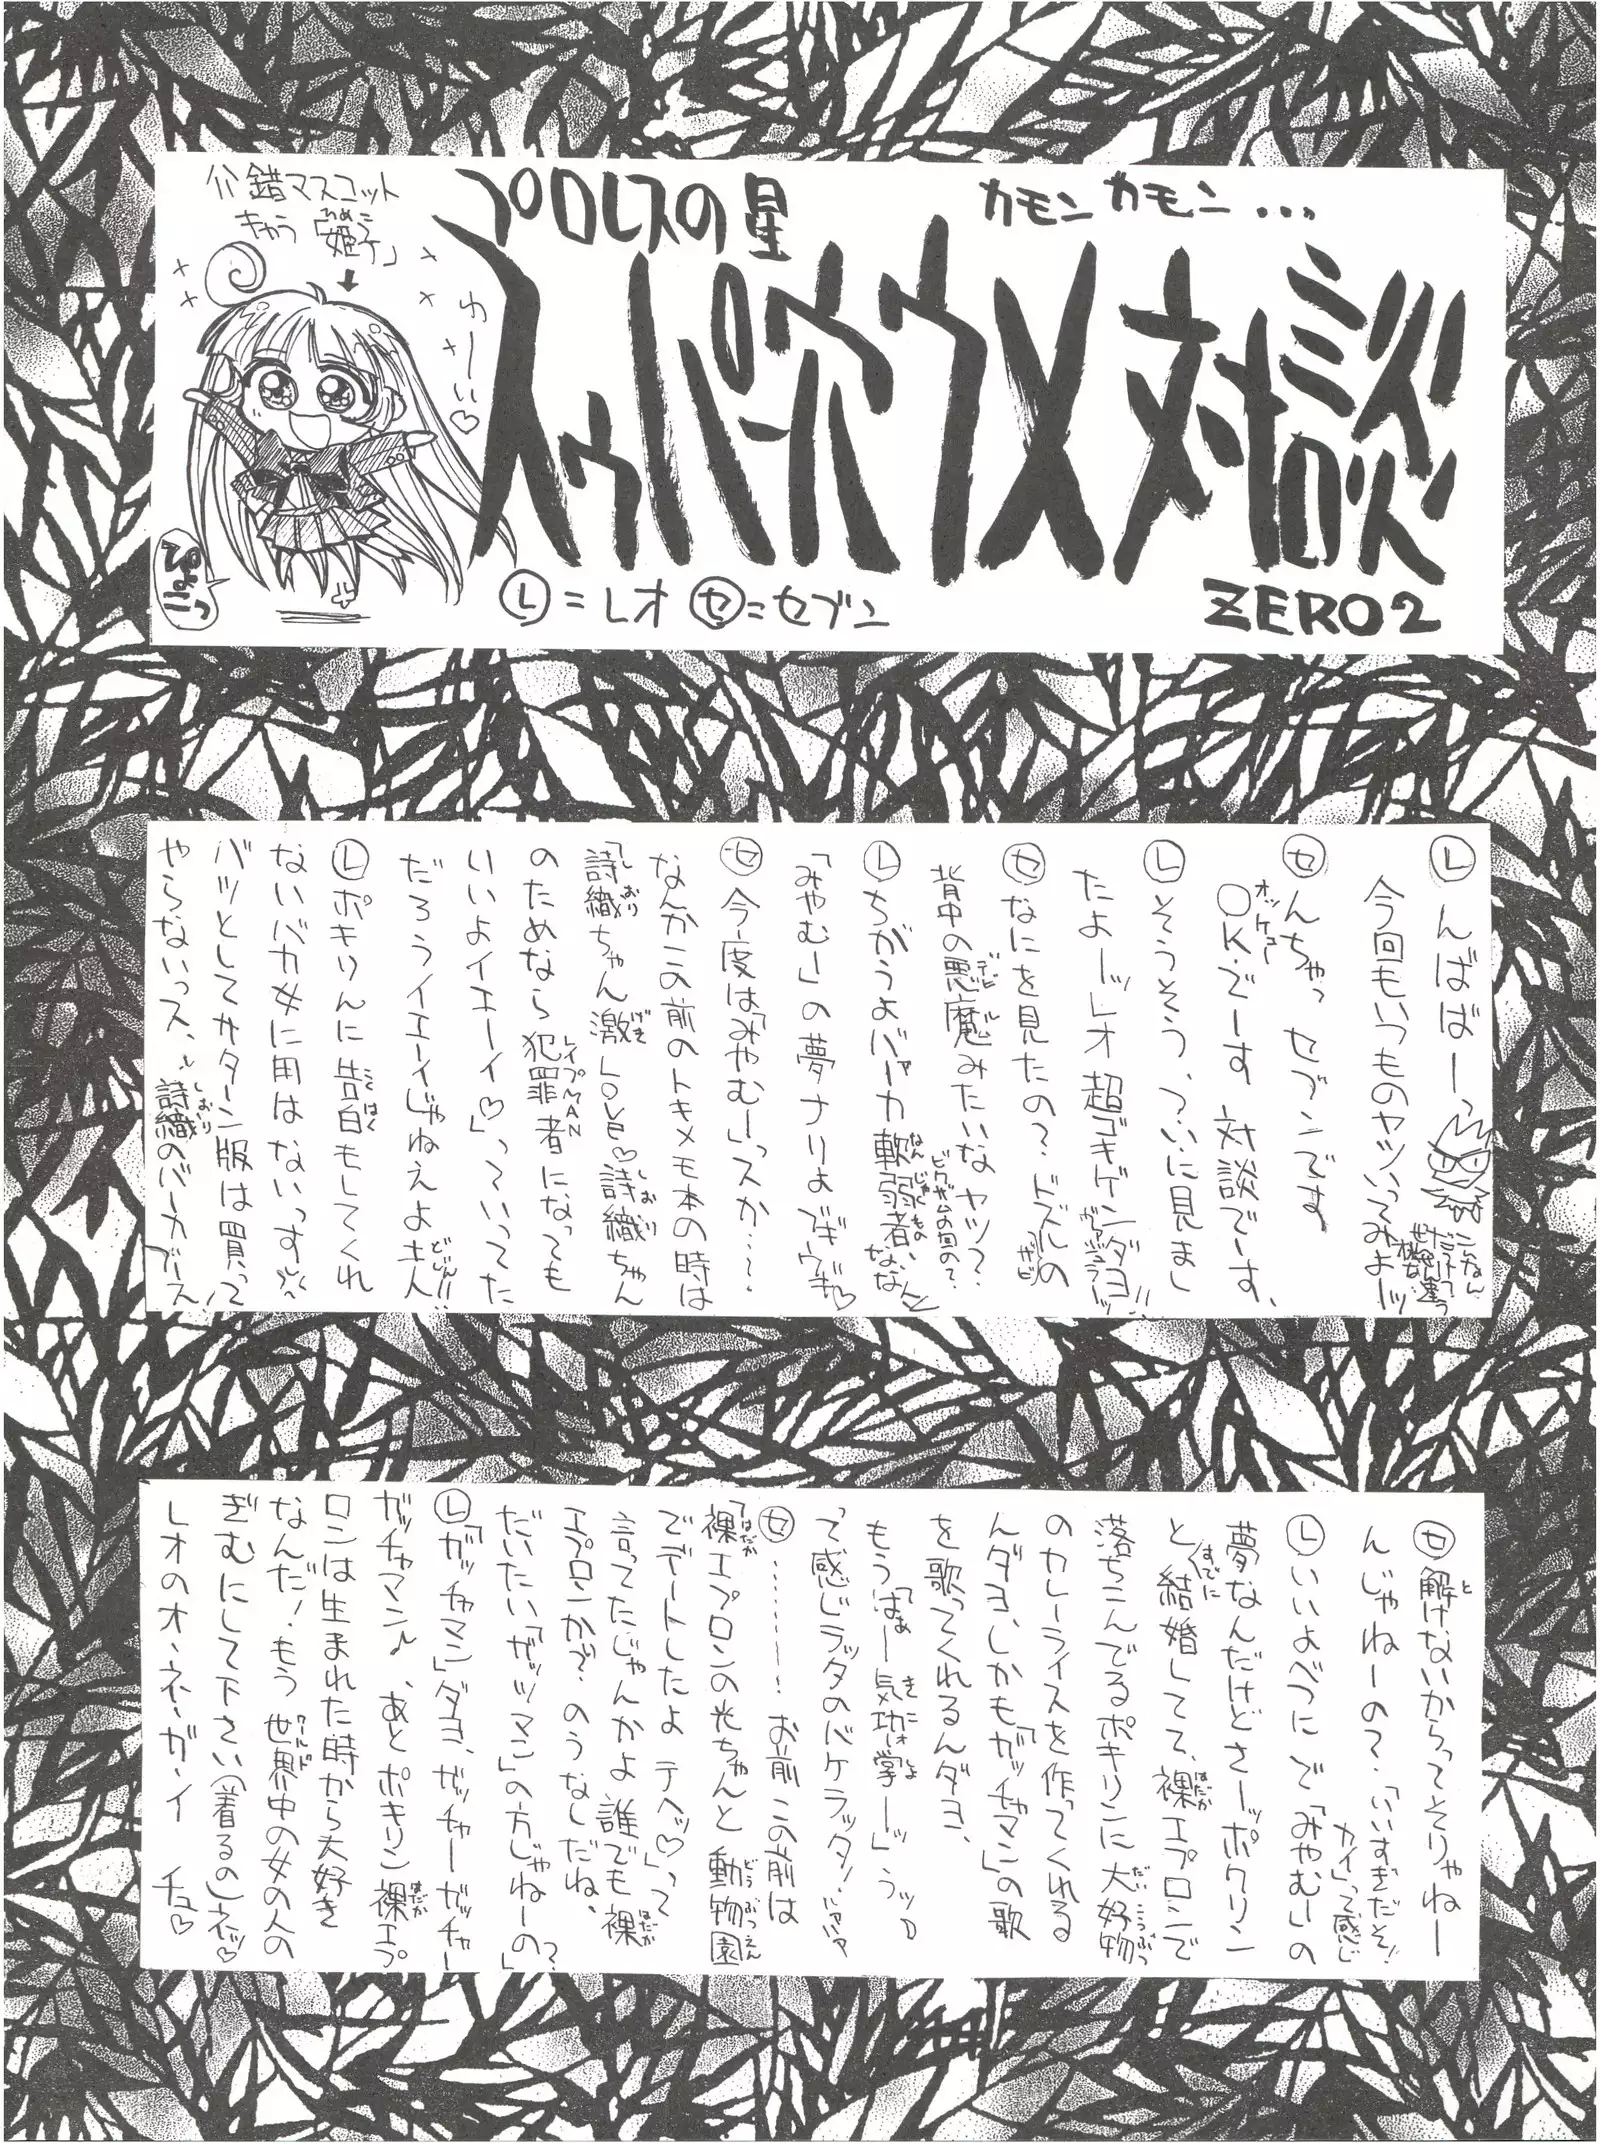 介錯マスコット
きゃら「姫子」
ひめこ
ゆーい♡
ぴょこっ
プロレスの星
カモンカモン...
スゥパー穴ウメ対談
ZERO2
Ⓛ=レオ ㋝=セブン
Ⓛんばばーっ
今回もいつものヤツいってみよーッ
㋝んちゃっ セブンです
OK.でーす 対談でーす、
オッケェー
Ⓛそうそう、ついに見まし
たよーッレオ超ゴキゲンダヨ!!
㋝なにを見たの?ドズルの
背中の悪魔みたいなヤツ?
デビル
Ⓛちがうよバーカ軟弱者、
なんじゃくもの
「みやむー」の夢ナリよ
㋝今度は「みやむー」っスか……
なんかこの前のトキメモ本の時は
「詩織ちゃん激LOVE♡詩織ちゃん
しおり
げき
しおり
のためなら犯罪者になっても
レイプMAN
いいよイエーイ♡」っていってた
だろうイエーイじゃねえよ土人
どじん!!
Ⓛポキりんに告白もしてくれ
こくはく
ないバカ女に用はないっす
バツとしてサターン版は買って
やらないっス、
詩織のバーカブース
しおり
㋝解けないからってそりゃねー
と
んじゃねーの?「いいすぎだぞ!
カイ」って感じ
Ⓛいいよべつに で「みやむー」の
夢なんだけどさーッポクリン
と結婚してて、裸エプロンで
すでに
はだか
落ちこんでるポキリンに大好物
だいこうぶつ
のカレーライスを作ってくれる
んダヨ、しかも「ガッチャマン」の歌
を歌ってくれるんダヨ、
もう「はぁー気功学ーッ」うッ
って感じラッタのバケラッタ!
㋝………! お前この前は
「裸エプロンの光ちゃんと動物園
はだか
どうぶつえん
でデートしたよ テヘッ♡」って
言ってたじゃんかよ誰でも裸
はだか
エプロンかで?のうなしだね、
だいたい「ガッツマン」の方じゃねーの」?
Ⓛ「ガッチャマン」ダヨ、ガッチャーガッチャー
ガッチャマン♪、あとポキリン裸エプ
はだか
ロンは生まれた時から大好き
なんだ!もう世界中の女の人の
ワールド
ぎむにして下さい(着るの)ネッ♡
レオのオ・ネ・ガ・イ チュ♡